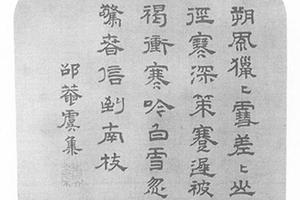 朔風獵〻雪差〻
徑寒深策蹇遲被
褐衝寒吟白雪忽
驚春信到南枝
邵菴虞集